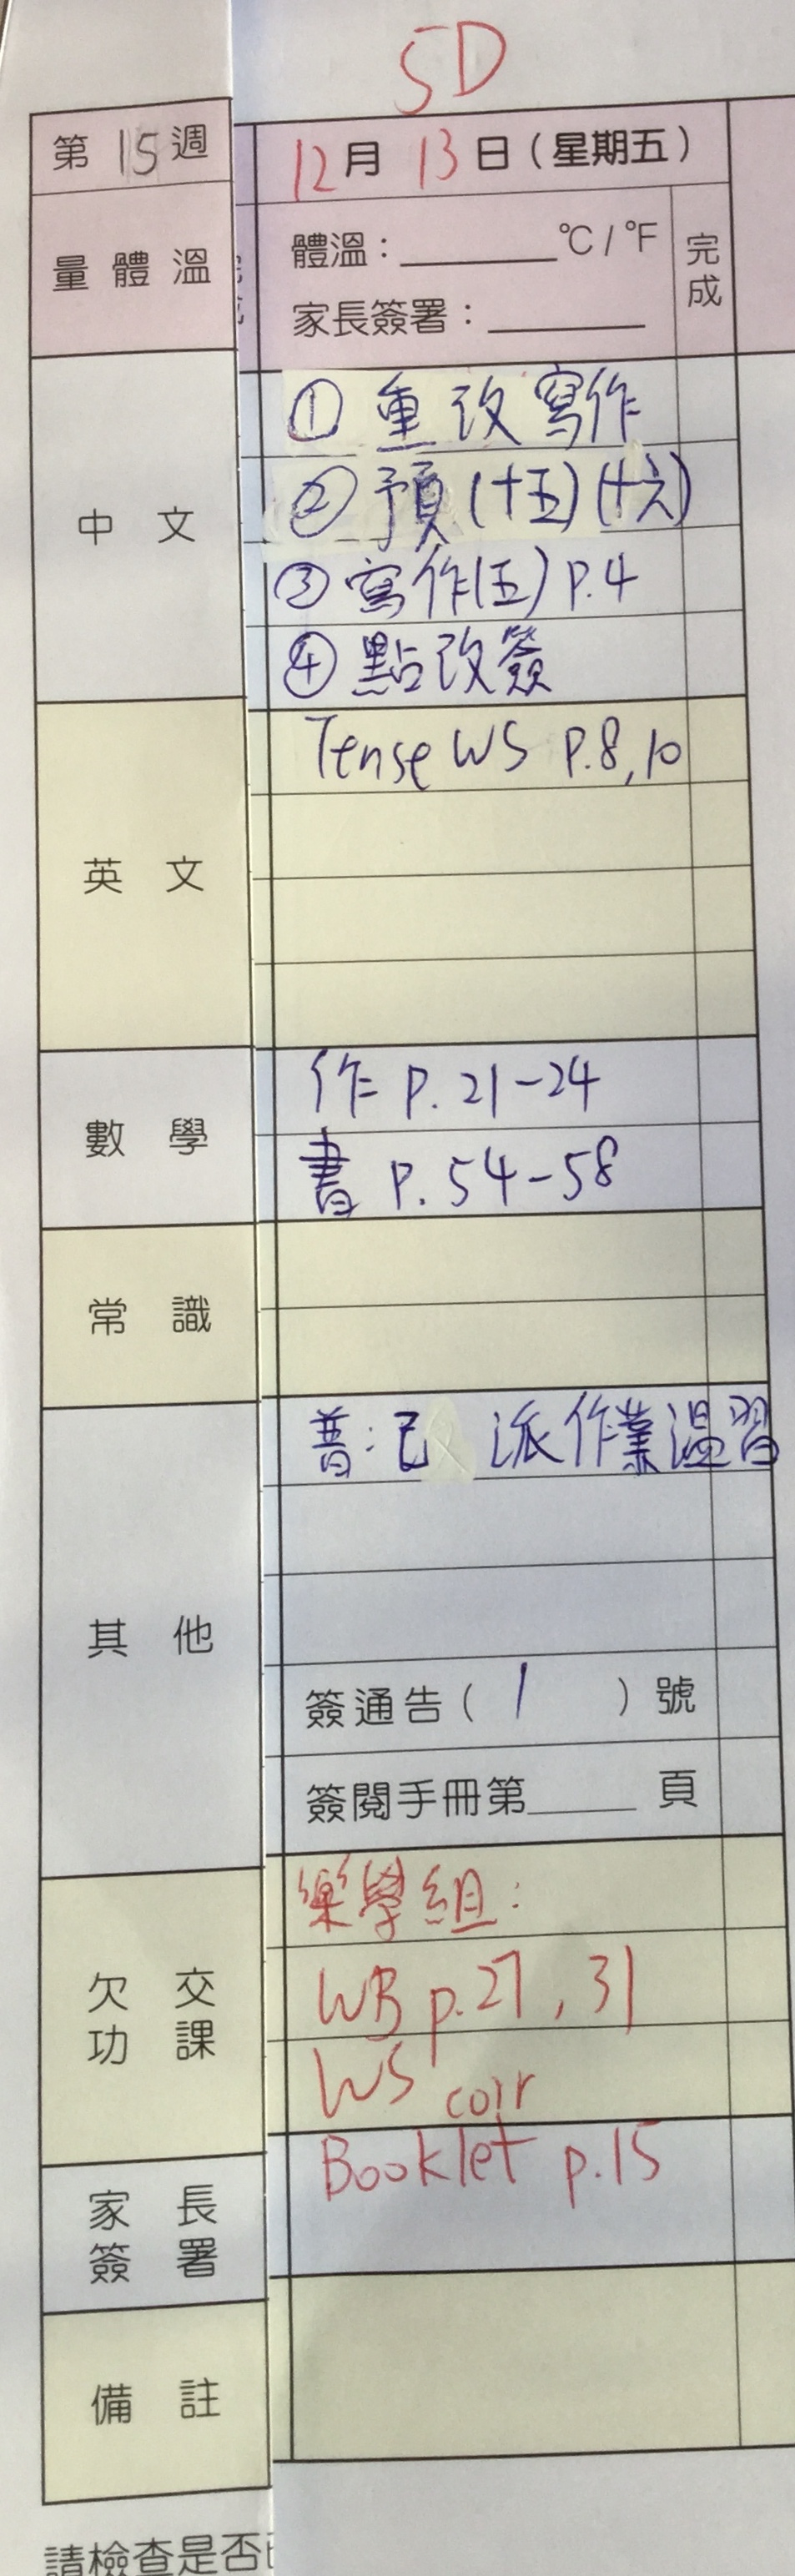 5D
第15週 12月13日(星期五)
量體溫 體溫:______°C/°F 完成
家長簽署:______
中文 ①重改寫作
②預(十五)(十六)
③寫作(五)P.4
④點改簽
英文 Tense WS P.8,10
數學 作P.21-24
書P.54-58
常識
其他 普:已派作業溫習
簽通告(1)號
簽閱手冊第____頁
欠交功課 樂學組:
WB p.27,31
WS corr
Booklet p.15
家長簽署
備註
請檢查是否